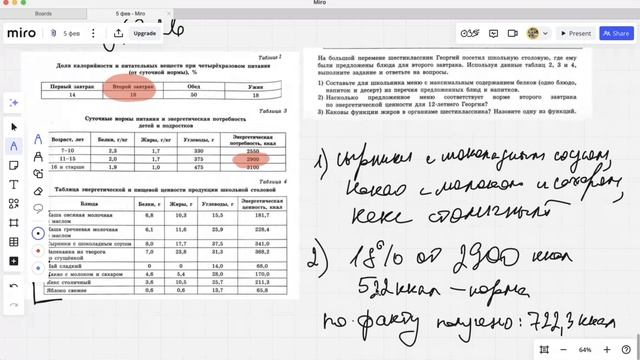 Miro
Boards
5 фев - Miro
miro
5 фев.
Upgrade
Таблица 1
Доли калорийности и питательных веществ при четырёхразовом питании
(от суточной нормы), %
Первый завтрак Второй завтрак Обед Ужин
14 18 50 18
Таблица 3
Суточные нормы питания и энергетическая потребность
детей и подростков
Возраст, лет Белки, г/кг Жиры, г/кг Углеводы, г Энергетическая потребность, ккал
7–10 2,3 1,7 330 2550
11–15 2,0 1,7 375 2900
16 и старше 1,9 1,0 475 3100
Таблица 4
Таблица энергетической и пищевой ценности продукции школьной столовой
Блюда Белки, г Жиры, г Углеводы, г Энергетическая ценность, ккал
Каша овсяная молочная
с маслом 6,8 10,3 15,5 181,7
Каша гречневая молочная
с маслом 6,1 11,6 25,9 228,4
Сырники с шоколадным соусом 8,0 17,7 37,5 341,0
Запеканка из творога
со сгущёнкой 7,0 23,8 31,3 368,2
Чай сладкий 0 0 14,0 68,0
Какао с молоком и сахаром 4,6 5,4 28,0 170,0
Кекс столичный 3,6 10,5 25,7 211,3
Яблоко свежее 0,6 0,6 13,7 65,8
На большой перемене шестиклассник Георгий посетил школьную столовую, где ему
были предложены блюда для второго завтрака. Используя данные таблиц 2, 3 и 4,
выполните задание и ответьте на вопросы.
1) Составьте для школьника меню с максимальным содержанием белков (одно блюдо,
напиток и десерт) из перечня предложенных блюд и напитков.
2) Насколько предложенное меню соответствует норме второго завтрака
по энергетической ценности для 12-летнего Георгия?
3) Каковы функции жиров в организме шестиклассника? Назовите одну из функций.
1) Сырники с шоколадным соусом,
какао с молоком и сахаром,
кекс столичный
2) 18% от 2900 ккал
522 ккал – норма
по факту получено: 722,3 ккал
64%